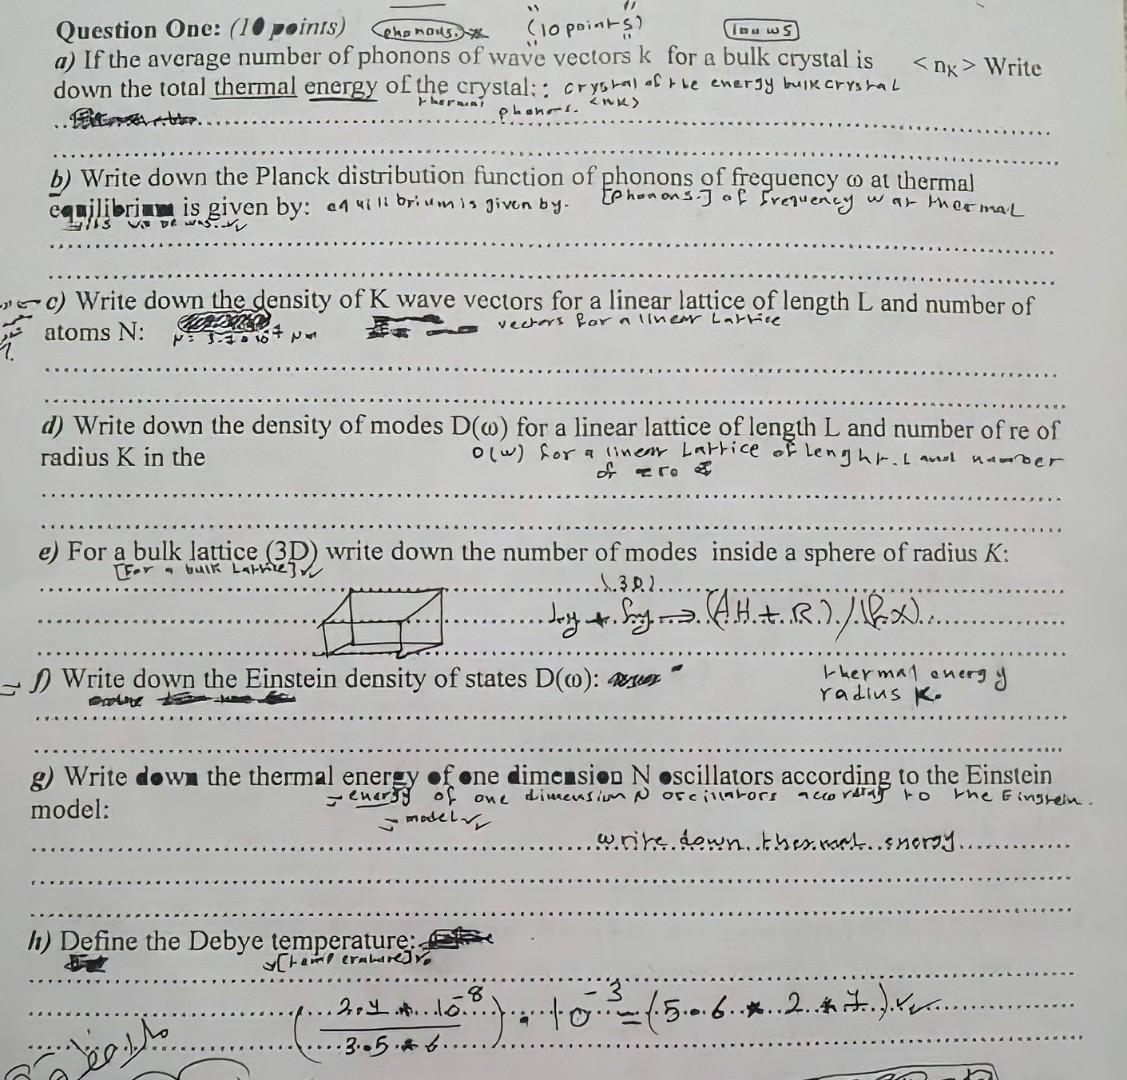 Question One: (10 points) phonons. (10 points) Laws
a) If the average number of phonons of wave vectors k for a bulk crystal is < nK > Write
down the total thermal energy of the crystal: : crystal of the energy bulk crystal
thermal phonons. <nK>
b) Write down the Planck distribution function of phonons of frequency ω at thermal
equilibrium is given by: equilibrium is given by. [phonons.] of frequency w at thermal
c) Write down the density of K wave vectors for a linear lattice of length L and number of
atoms N: vectors for a linear Lattice
d) Write down the density of modes D(ω) for a linear lattice of length L and number of re of
radius K in the D(w) for a linear Lattice of Lenght. L and number
of zro
e) For a bulk lattice (3D) write down the number of modes inside a sphere of radius K:
[For a bulk Lattice]
(3D)
(AH + R) / (Rx)
f) Write down the Einstein density of states D(ω):
thermal energy
radius K.
g) Write down the thermal energy of one dimension N oscillators according to the Einstein
energy of one dimension N oscillators according to the Einstein.
model:
model
write down thermal energy
h) Define the Debye temperature:
[temperature]
(2.y * 10^-8 / 3.5 * 6) . 10^-3 = (5.6 * 2 * 7)